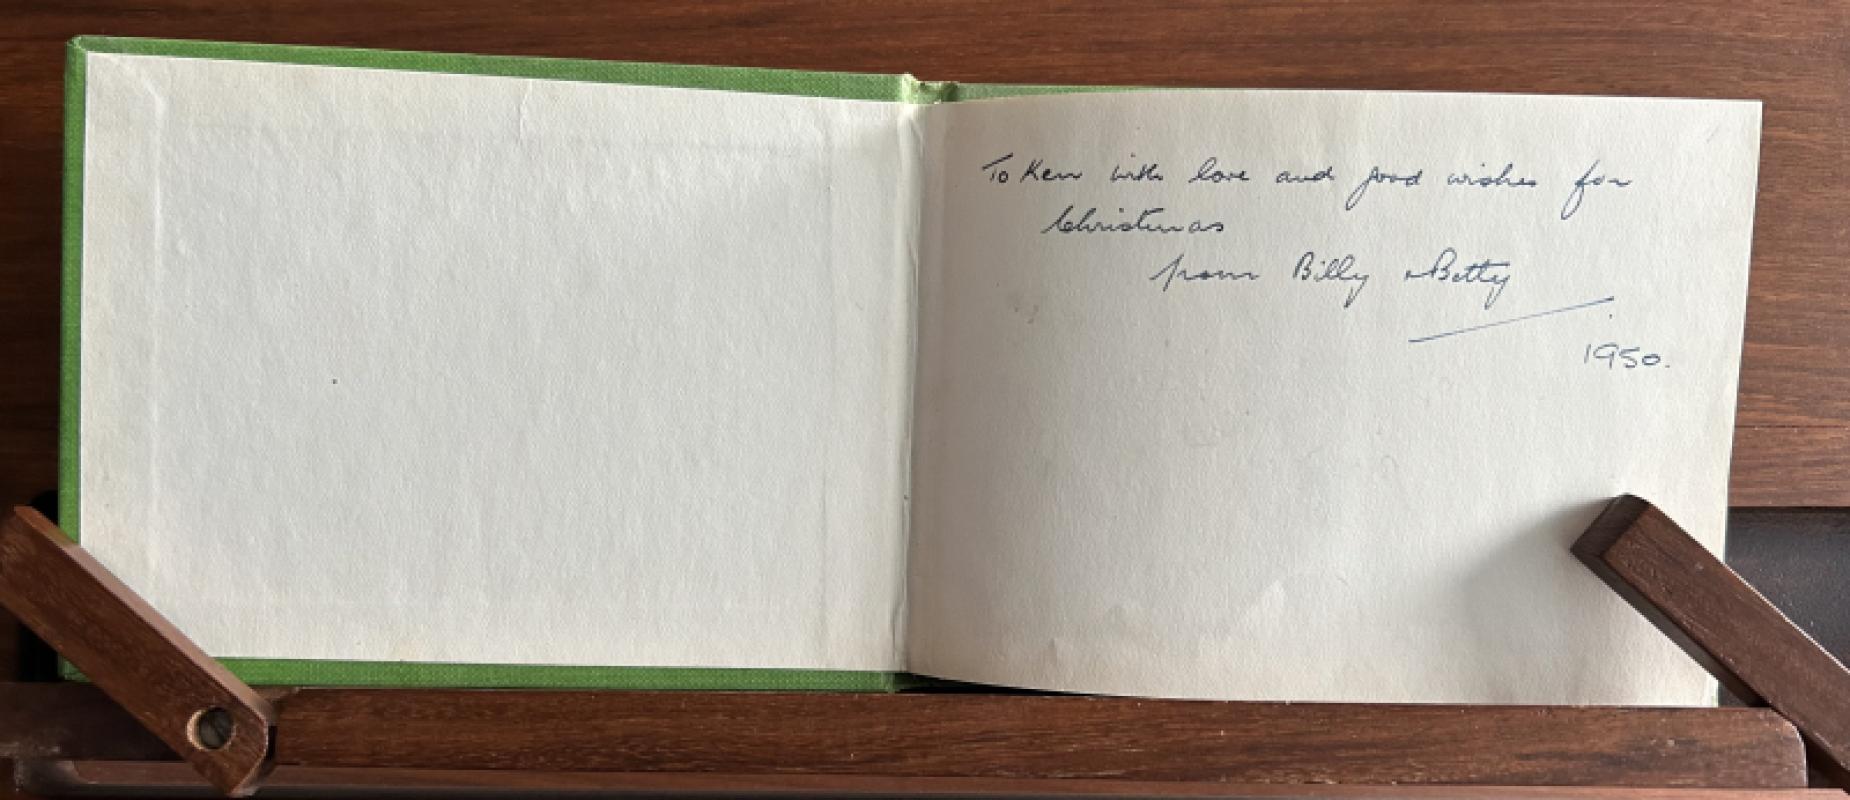 To Ken with love and good wishes for
Christmas
from Billy & Betty
1950.